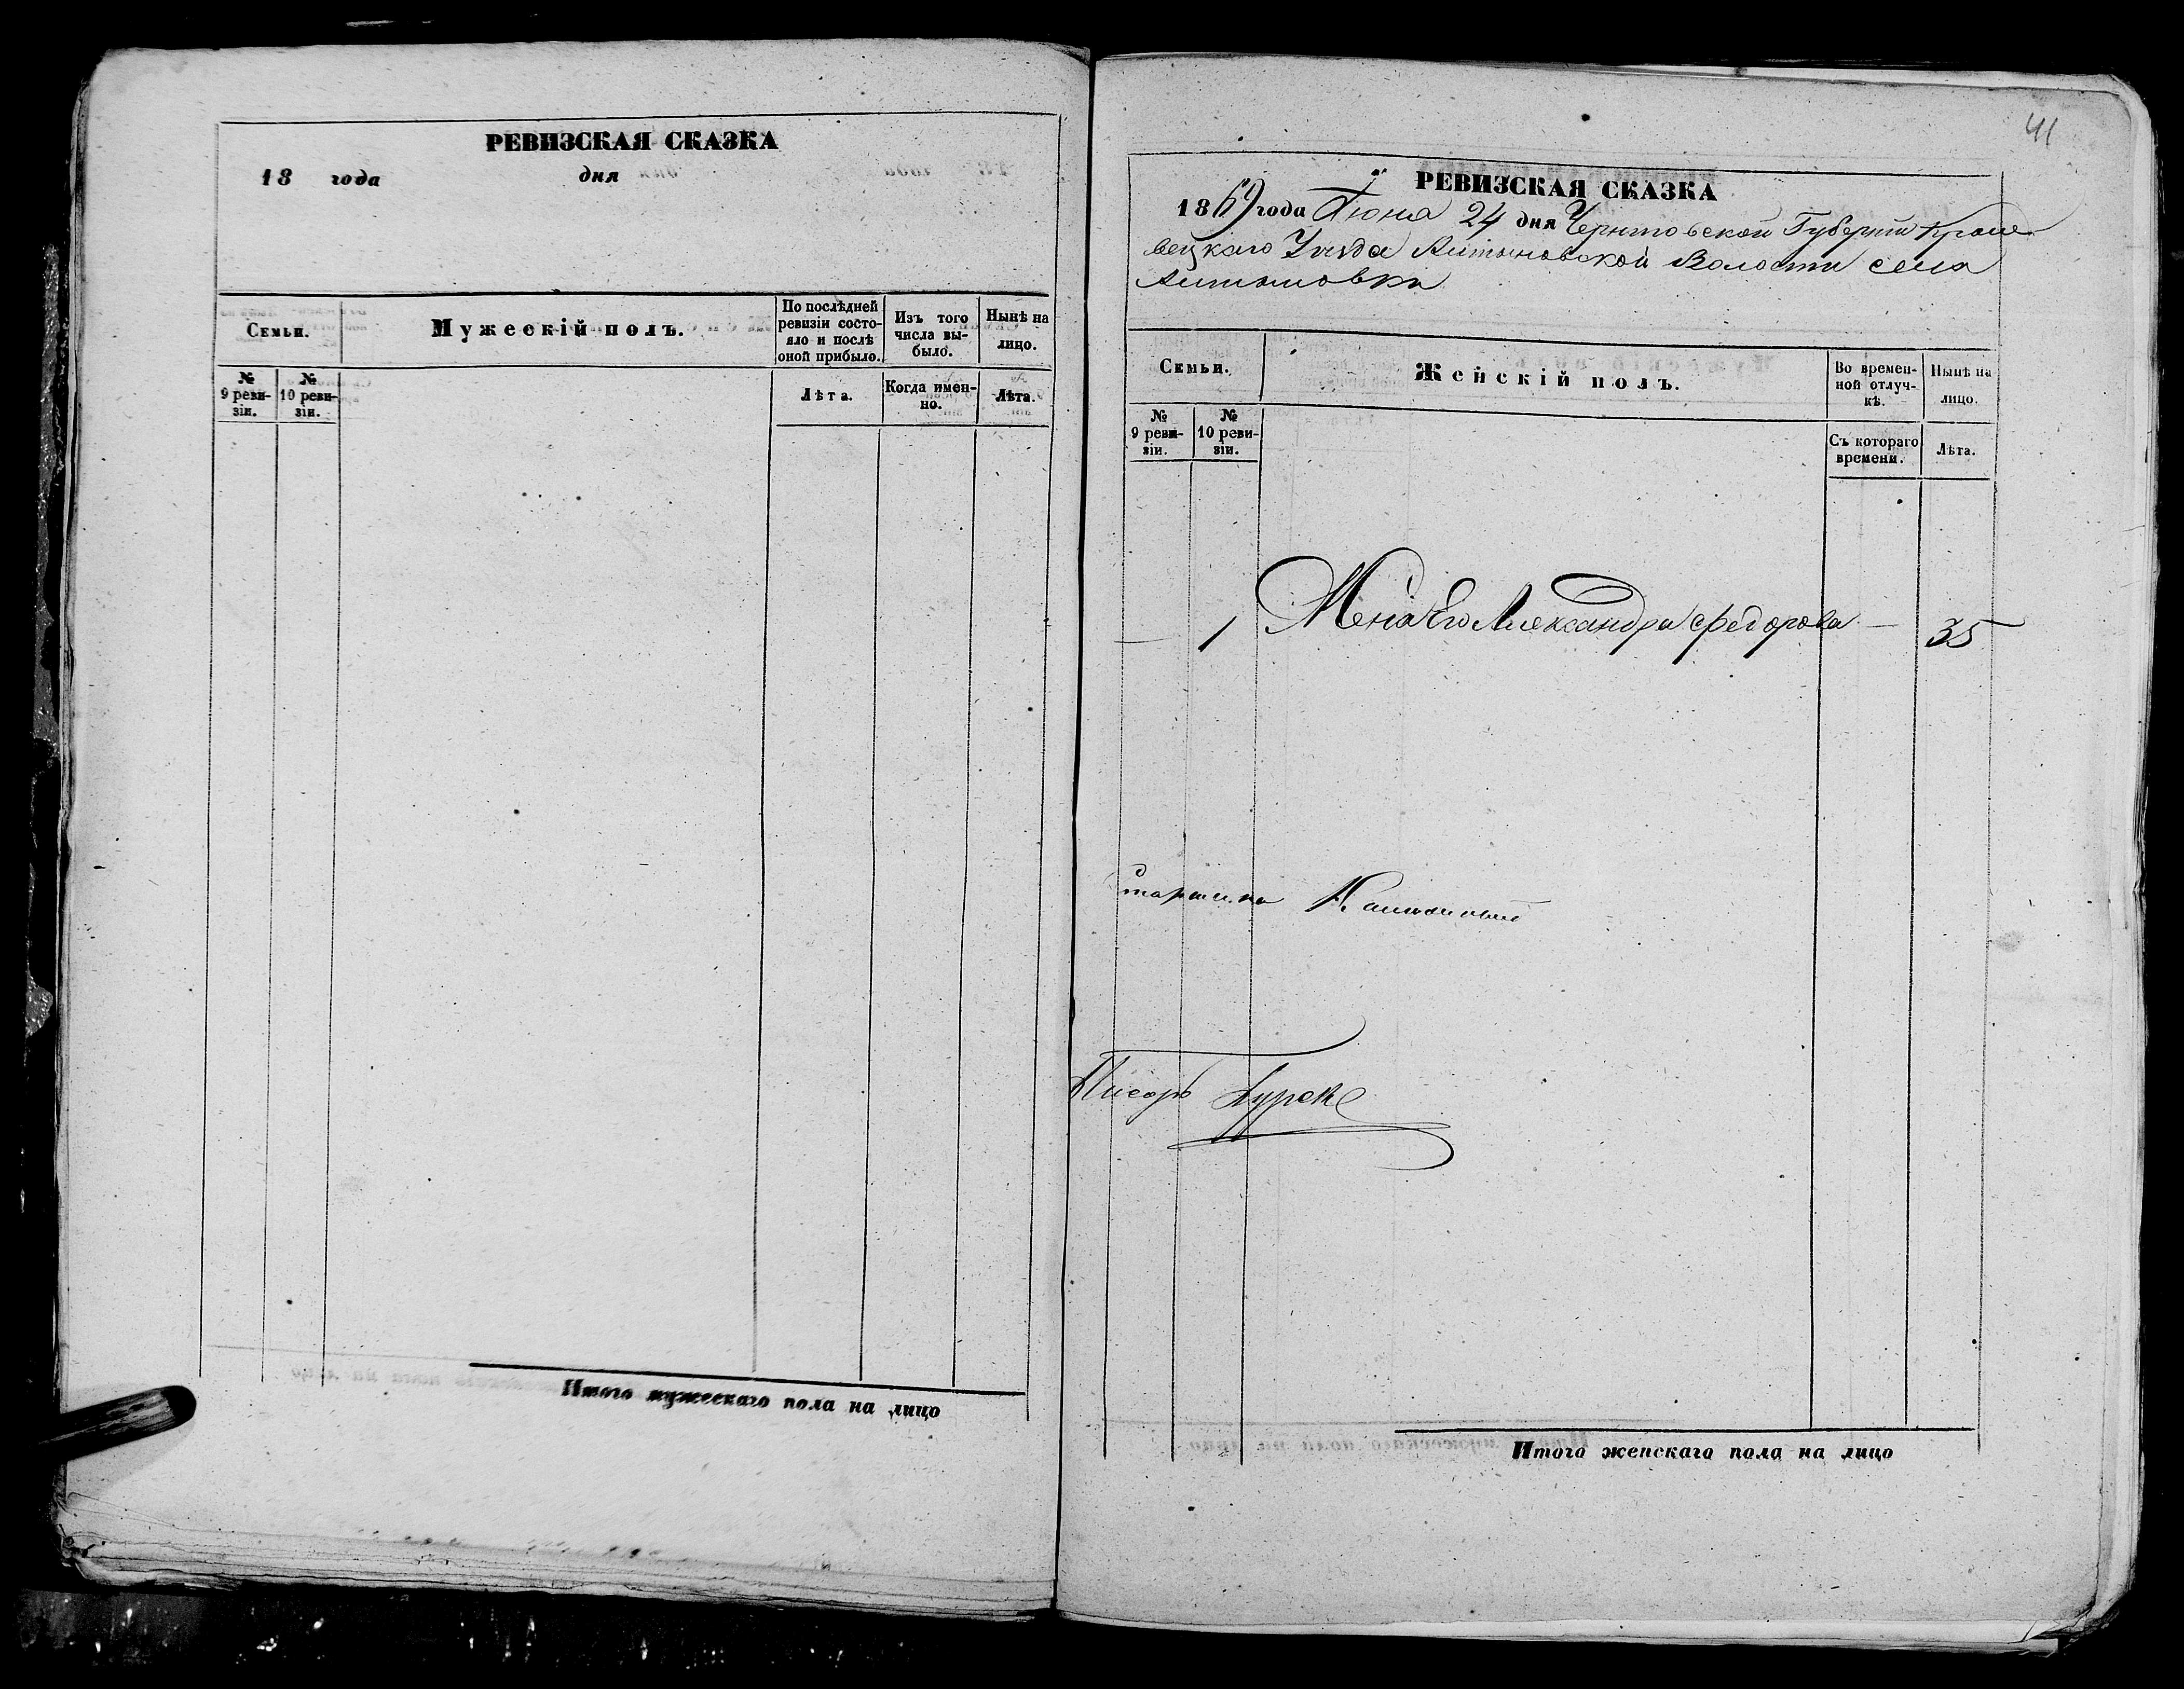 РЕВИЗСКАЯ СКАЗКА
18 года дня
Семьи.
Мужескій полъ.
По послѣдней ревизіи состояло и послѣ оной прибыло.
Изъ того числа выбыло.
Нынѣ на лицо.
№ 9 ревизіи.
№ 10 ревизіи.
Лѣта.
Когда именно.
Лѣта.
Итого мужескаго пола на лицо
41
РЕВИЗСКАЯ СКАЗКА
1869 года Іюня 24 дня Черниговской Губерніи Кроле
вецкаго Уѣзда Алтыновской Волости села
Алтыновки
Семьи.
Женскій полъ.
Во временной отлучкѣ.
Нынѣ на лицо.
№ 9 ревизіи.
№ 10 ревизіи.
Съ котораго времени.
Лѣта.
— 1 Жена Его Александра Федорова — 35
Старшина
Писарь
Итого женскаго пола на лицо